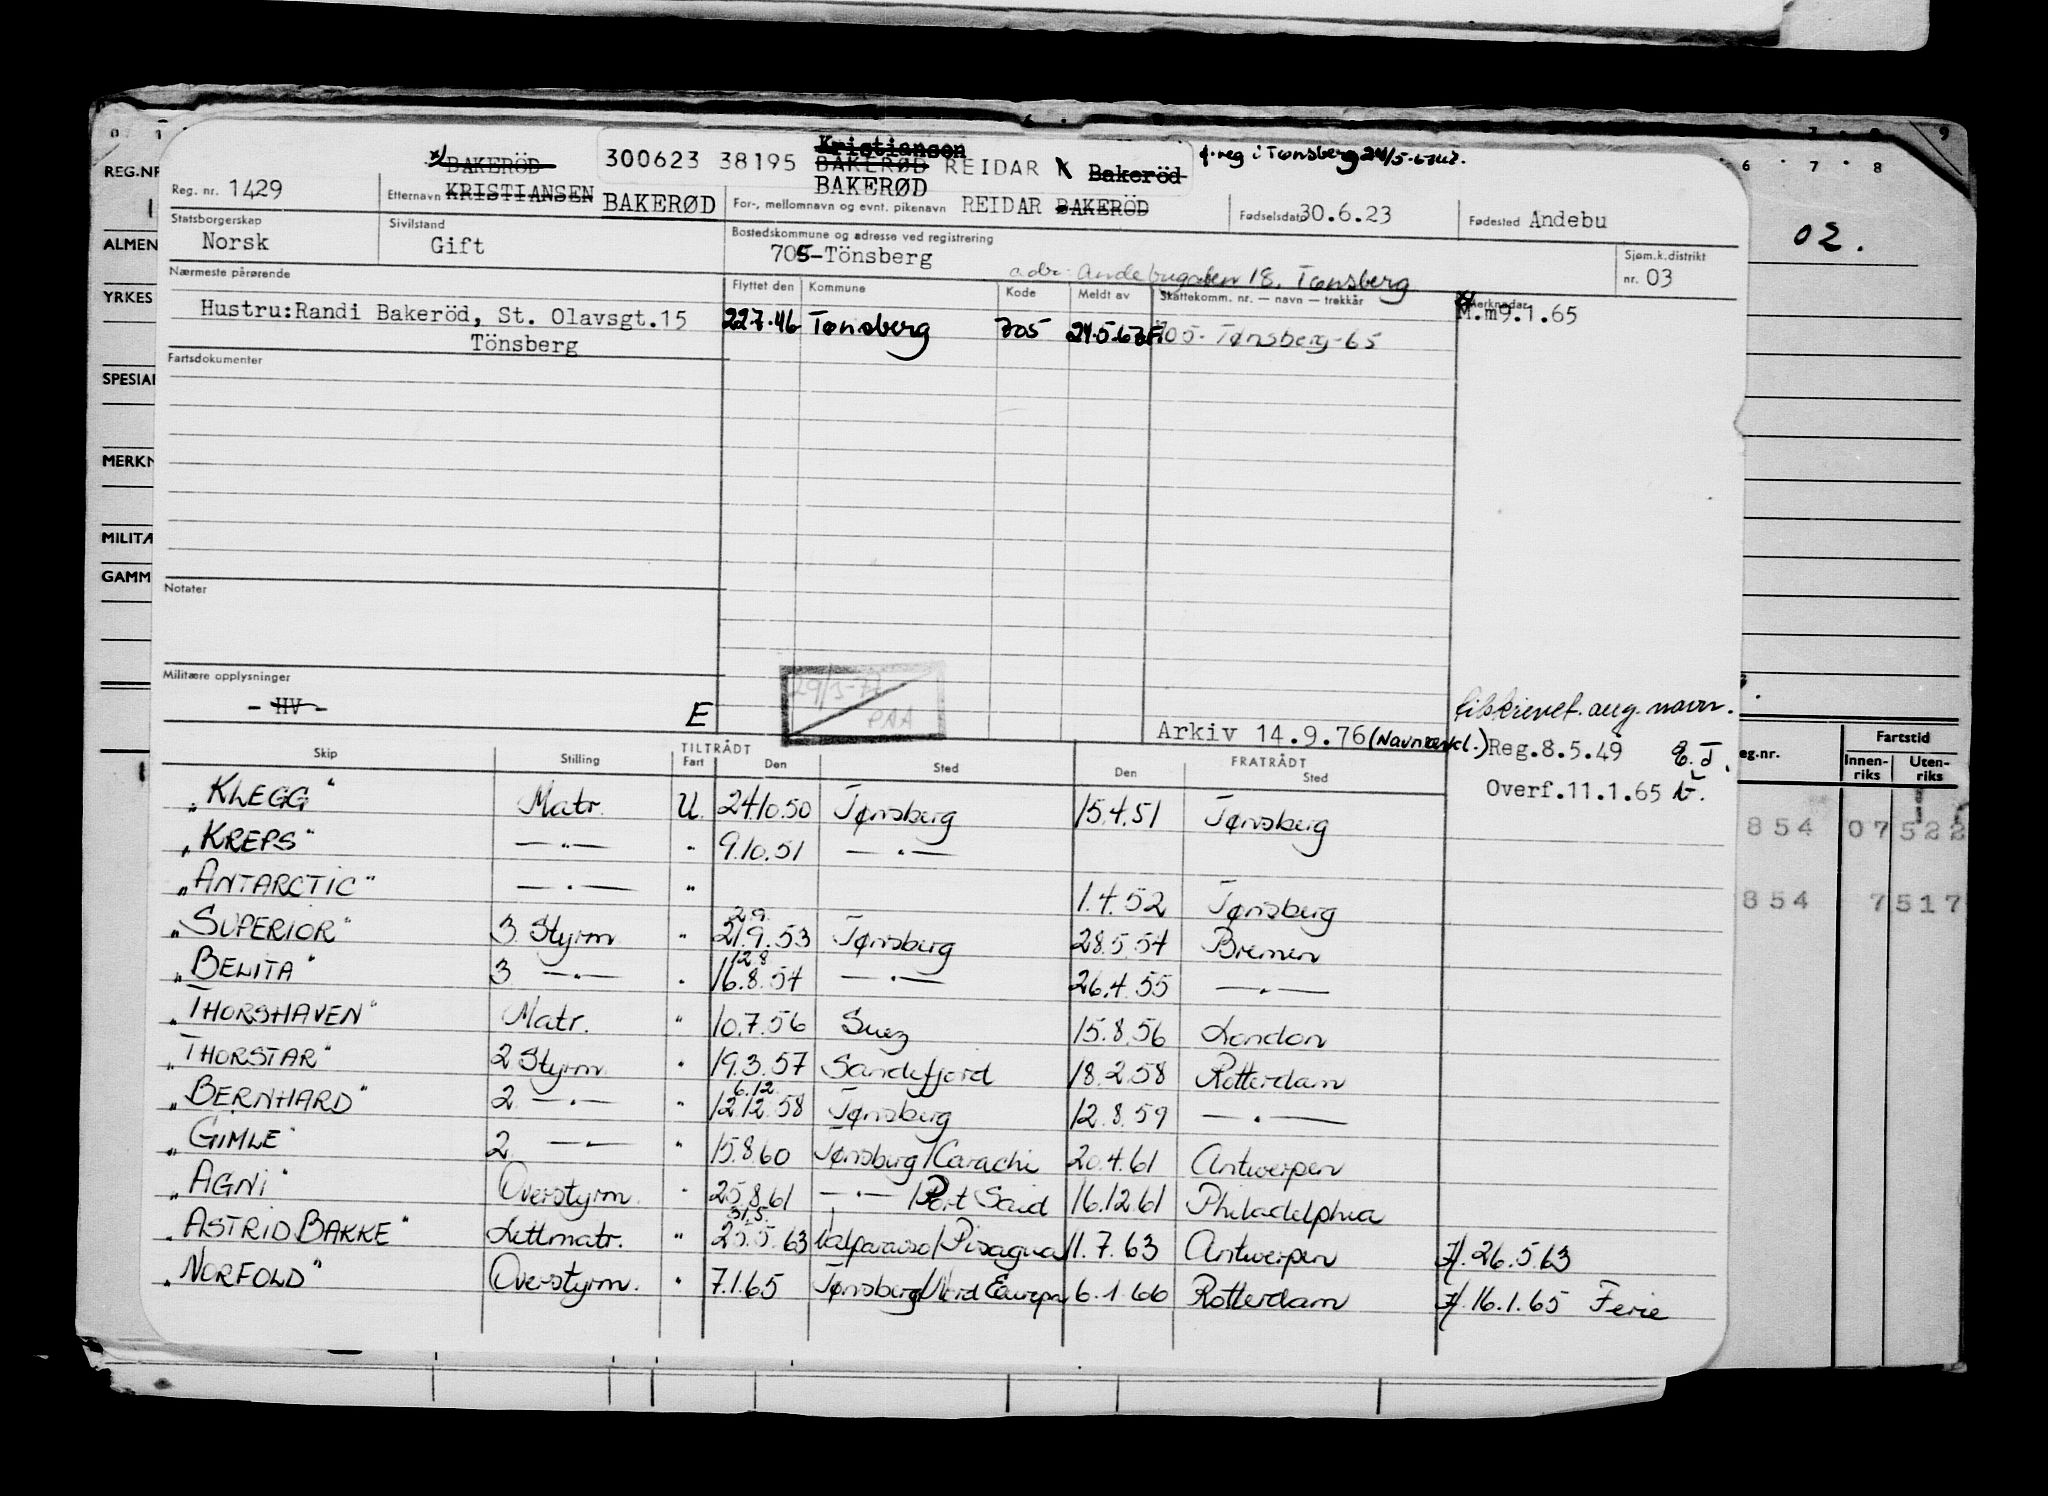 300623 38195 ~~Kristiansen~~
~~BAKERØD~~ REIDAR ~~Bakeröd~~
BAKERØD
f. reg i Tønsberg 24/5-67
x/ ~~BAKERÖD~~
Reg. nr. 1429 Etternavn ~~KRISTIANSEN~~ BAKERØD For-, mellomnavn og evnt. pikenavn REIDAR ~~BAKERÖD~~ Fødselsdato 30.6.23 Fødested Andebu
Statsborgerskap Norsk Sivilstand Gift Bostedskommune og adresse ved registrering 705-Tönsberg Sjøm.k.distrikt nr. 03
adr: Andebugaten 18, Tønsberg
Nærmeste pårørende Flyttet den Kommune Kode Meldt av Skattekomm. nr. — navn — trekkår Merknader
Hustru:Randi Bakeröd, St. Olavsgt.15 22.7.46 Tønsberg 705 24.5.67 705-Tønsberg-65 M.m9.1.65
Tönsberg
Fartsdokumenter
Notater
Militære opplysninger
- ~~HV~~ - E
29/3-77
PAA
Arkiv 14.9.76
Reg.8.5.49
Overf.11.1.65
Skip Stilling TILTRÅDT Fart Den Sted FRATRÅDT Den Sted
"KLEGG" Matr. U. 24.10.50 Tønsberg 15.4.51 Tønsberg
"KREPS" —"— " 9.10.51 —"—
"ANTARCTIC" —"— " 1.4.52 Tønsberg
"SUPERIOR" 3 Styrm. " 29. 21.9.53 Tønsberg 28.5.54 Bremen
"BELITA" 3 —"— " 12.8 16.8.54 —"— 26.4.55 —"—
"THORSHAVEN" Matr. " 10.7.56 Suez 15.8.56 London
"THORSTAR" 2 Styrm. " 19.3.57 Sandefjord 18.2.58 Rotterdam
"BERNHARD" 2 —"— " 6.12. 12.12.58 Tønsberg 12.8.59 —"—
"GIMLE" 2 —"— " 15.8.60 Tønsberg/Carachi 20.4.61 Antwerpen
"AGNI" Overstyrm. " 25.8.61 —"— /Port Said 16.12.61 Philadelphia
"ASTRID BAKKE" Lettmatr. " 31.5. 25.5.63 Valparaiso/Pisagua 11.7.63 Antwerpen 26.5.63
"NORFOLD" Overstyrm. " 7.1.65 Tønsberg/Nord Europa 6.1.66 Rotterdam 16.1.65 Ferie
REG.NR
ALMEN
YRKES
SPESIAL
MERKN
MILITÆ
GAMM
6 7 8 9
02.
eg.nr. Fartstid
Innen-riks Uten-riks
854 07 522
854 7 517